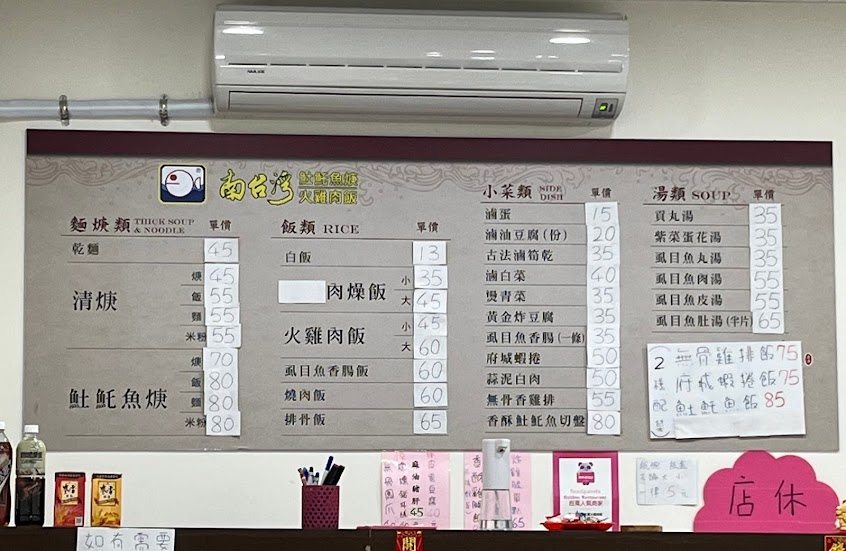 南台灣 魠魠魚焿
火雞肉飯
麵焿類 THICK SOUP & NOODLE 單價
乾麵 45
清焿 焿 45
飯 55
麵 55
米粉 55
魠魠魚焿 焿 70
飯 80
麵 80
米粉 80
飯類 RICE 單價
白飯 13
肉燥飯 小 35
大 45
火雞肉飯 小 45
大 60
虱目魚香腸飯 60
燒肉飯 60
排骨飯 65
小菜類 SIDE DISH 單價
滷蛋 15
滷油豆腐(份) 20
古法滷筍乾 35
滷白菜 40
燙青菜 35
黃金炸豆腐 35
虱目魚香腸(一條) 35
府城蝦捲 50
蒜泥白肉 50
無骨香雞排 55
香酥魠魠魚切盤 80
湯類 SOUP 單價
貢丸湯 35
紫菜蛋花湯 35
虱目魚丸湯 35
虱目魚肉湯 55
虱目魚皮湯 55
虱目魚肚湯(半片) 65
2樣配菜
無骨雞排飯 75
府城蝦捲飯 75
魠魠魚飯 85
麻油豬肝 45
65
foodpanda
一律5元
店休
如有需要
開